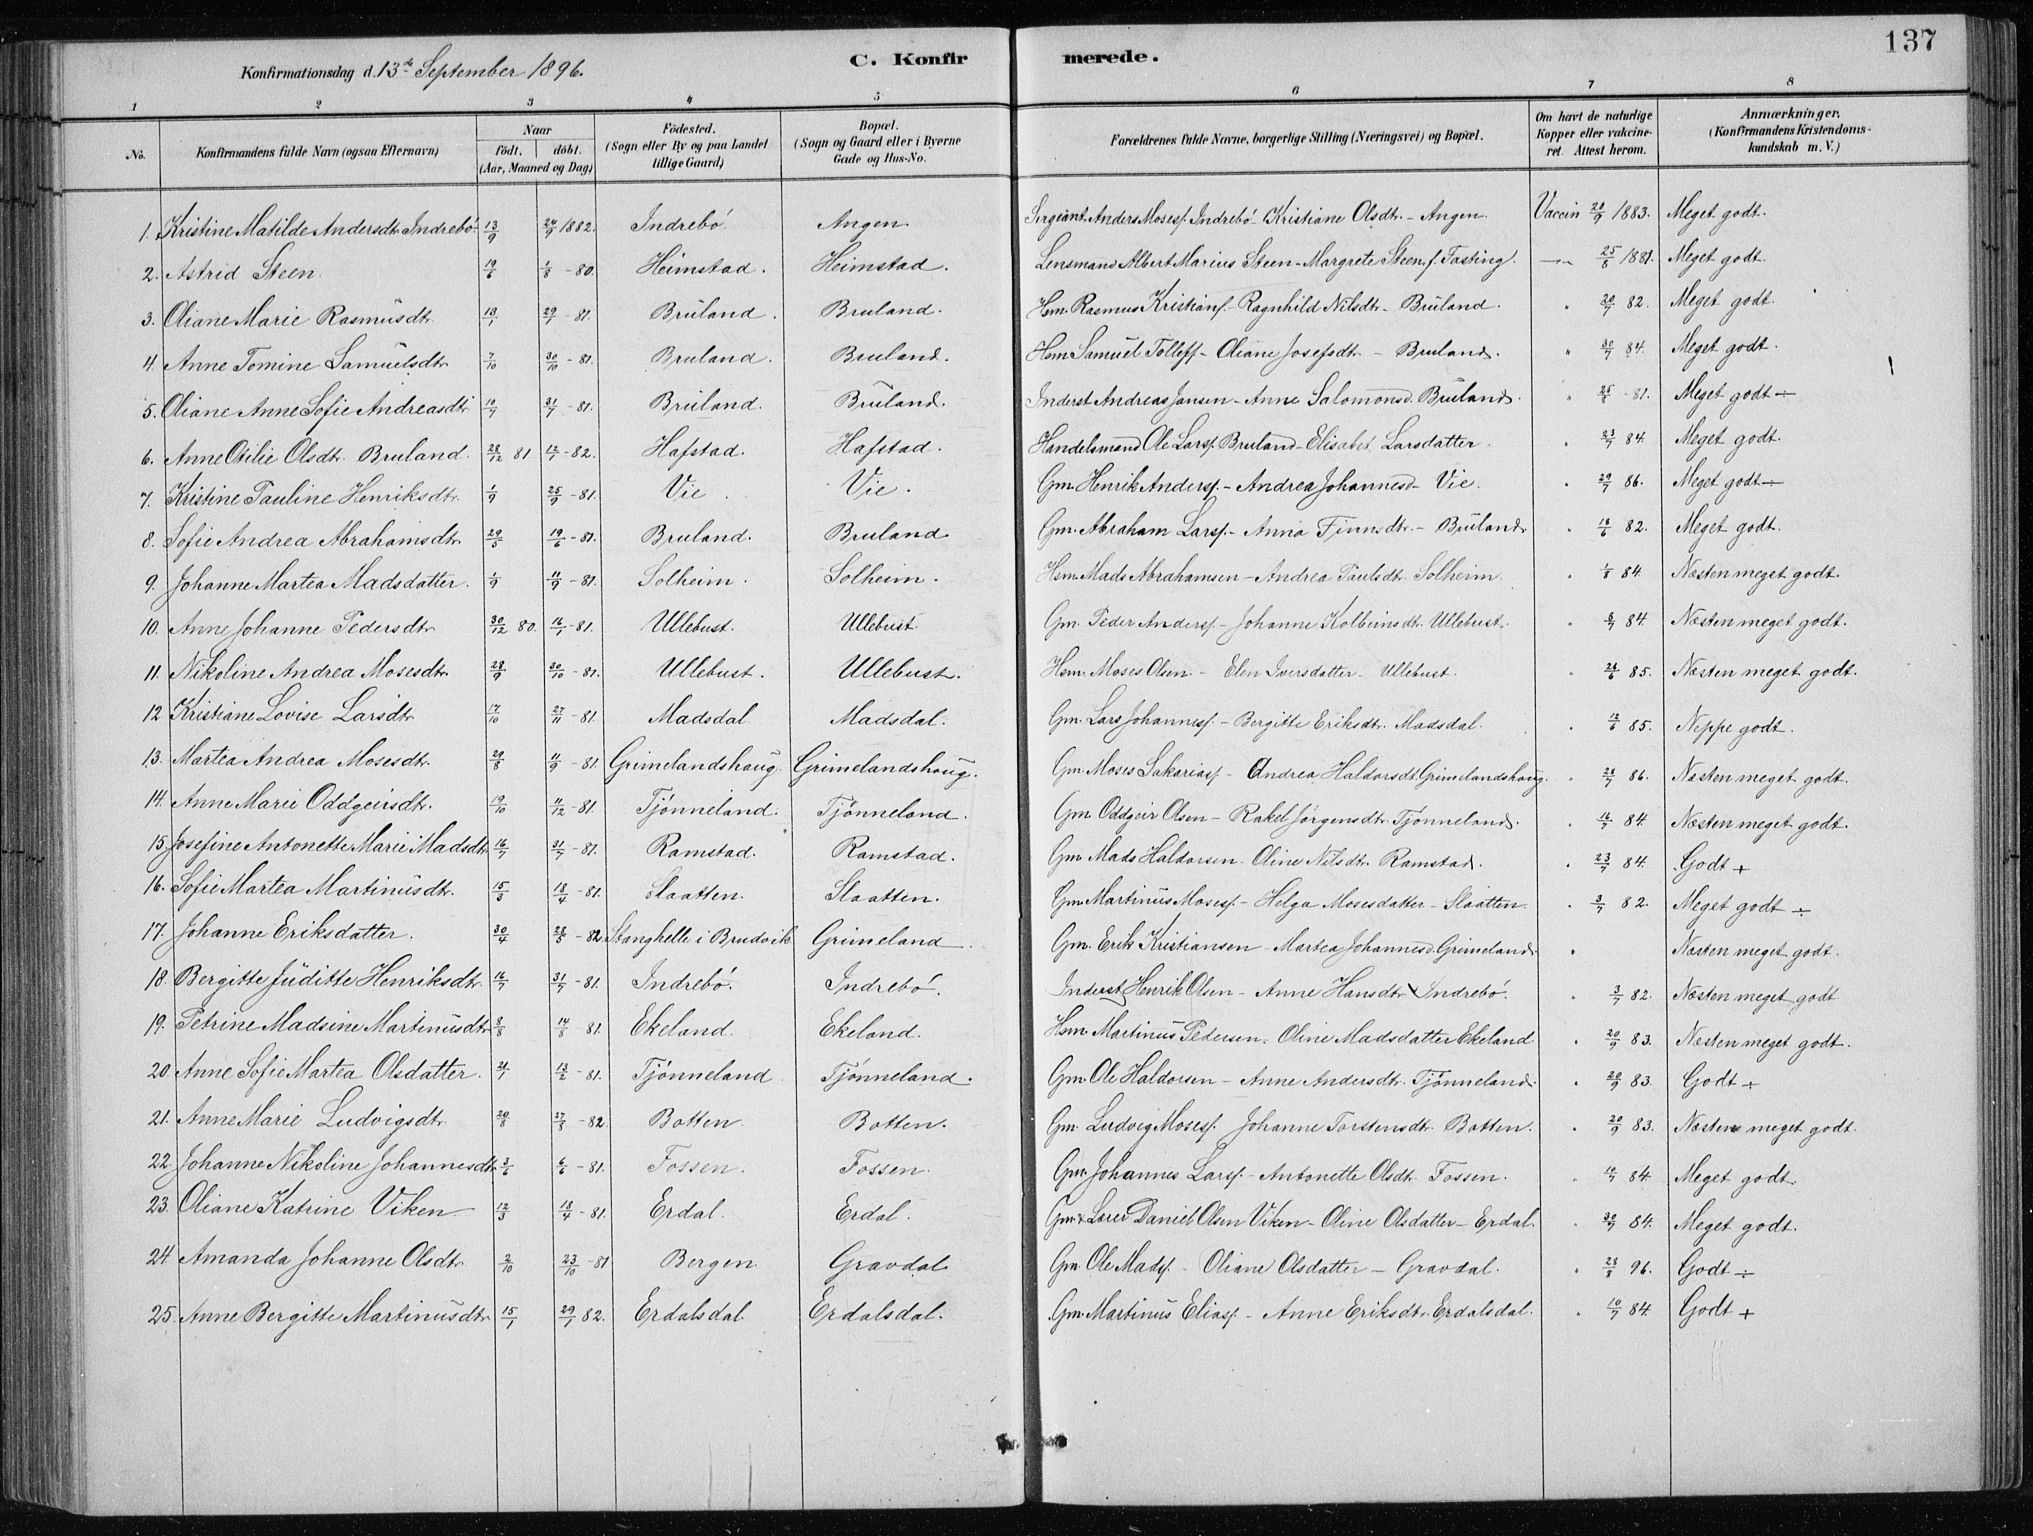 137
Konfirmationsdag d. 13de September 1896. C. Konfir merede.
1 2 3 4 5 6 7 8
No. Konfirmandens fulde Navn (ogsaa Efternavn) Naar födt. döbt. (Aar, Maaned og Dag) Födested. (Sogn eller By og paa Landet tillige Gaard) Bopæl. (Sogn og Gaard eller i Byerne Gade og Hus-No. Forældrenes fulde Navne, borgerlige Stilling (Næringsvei) og Bopæl. Om havt de naturlige Kopper eller vakcineret. Attest herom. Anmærkninger. (Konfirmandens Kristendomskundskab m. V.)
1. Kristine Matilde Andersdtr Indrebö 13/9 24/9 1882. Indrebö Angen Sergeant Anders Mosess. Indrebö Kristiane Olsdt. - Angen. Vaccin 20/9 1883. Meget godt.
2. Astrid Steen 19/6 1/8 - 80. Heimstad. Heimstad. Lensmand Albert Marius Steen - Margrete Steen f. Fasting. -"- 25/8 1881. Meget godt.
3. Oliane Marie Rasmusdtr 18/1 29/1 - 81. Bruland. Bruland. Hsm. Rasmus Kristians. - Ragnhild Nilsdt. - Bruland. " 20/7 82. Meget godt.
4. Anne Tomine Samuelsdtr 7/10 30/10 - 81. Bruland. Bruland. Hsm Samuel Tollefs. - Oliane Josefsdt. - Bruland. " 30/7 84. Meget godt.
5. Oliane Anne Sofie Andreasdt 10/7 31/7 - 81. Bruland. Bruland. Inderst Andreas Jansen - Anne Salomonsd. Bruland. " 25/8 - 81. Meget godt ÷
6. Anne Otilie Olsdt. Bruland. 28/12 81 12/1 - 82. Hafstad. Hafstad. Handelsmand Ole Larss. Bruland - Elisabet Larsdatter. " 23/7 84. Meget godt.
7. Kristine Pauline Henriksdtr. 1/9 25/9 - 81. Vie. Vie. Gm. Henrik Anderss. - Andrea Johannesd - Vie. " 29/7 86. Meget godt ÷
8. Sofie Andrea Abrahamsdtr. 29/5 19/6 - 81. Bruland. Bruland Gm. Abraham Larss. - Anna Finnsdtr. - Bruland. " 18/6 82. Meget godt.
9. Johanne Martea Madsdatter. 1/9 11/9 - 81. Solheim. Solheim. Hsm. Mads Abrahamsen - Andrea Paulsdt. Solheim. " 1/8 84. Næsten meget godt.
10. Anne Johanne Pedersdtr 30/12 80. 16/1 - 81. Ullebust. Ullebust. Gm. Peder Anderss. - Johanne Kolbeinsdt. Ullebust. " 84. Næsten meget godt.
11. Nikoline Andrea Mosesdtr 28/9 30/10 - 81. Ullebust. Ullebust. Hsm. Moses Olsen. - Elen Iversdatter - Ullebust. " 85. Næsten meget godt.
12 Kristiane Lovise Larsdtr 17/10 27/11 - 81. Madsdal Madsdal. Gm. Lars Johanness. - Bergitte Eriksdt. Madsdal. " 85. Neppe godt.
13. Martea Andrea Mosesdtr. 29/8 11/9 - 81. Grimelandshaug. Grimelandshaug. Gm. Moses Sakariass. - Andrea Haldorsdt. Grimelandshaug. " 86. Næsten meget godt.
14. Anne Marie Oddgeirsdtr. 19/10 11/12 - 81. Tjönneland. Tjönneland. Gm. Oddgeir Olsen - Rakel Jörgensdtr. Tjönneland. " 84. Næsten meget godt.
15. Josefine Antonette Marie Madsdtr 16/7 31/7 - 81. Ramstad. Ramstad. Gm. Mads Haldorsen - Oline Nilsdtr. Ramstad. " 23/7 84. Godt +
16. Sofie Martea Martinusdtr. 15/3 18/4 - 81. Slaatten. Slaatten. Gm. Martinus Mosess. - Helga Mosesdatter - Slaatten. " 3/7 82. Meget godt ÷
17. Johanne Eriksdatter. 30/4 28/5 - 82 Stanghelle i Brudvik Grimeland. Gm. Erik Kristiansen - Martea Johannesd. Grimeland. " Næsten meget godt.
18. Bergitte Juditte Henriksdt. 16/7 31/7 - 81. Indrebö. Indrebö. Inderst Henrik Olsen - Anne Hansdtr Indrebö. " 3/7 82. Næsten meget godt
19. Petrine Madsine Martinusdtr 8/8 14/8 81. Ekeland. Ekeland. Hsm. Martinus Pedersen. Oline Madsdatter Ekeland " 20/9 83. Næsten meget godt.
20. Anne Sofie Martea Olsdatter. 21/1 13/2 - 81. Tjönneland Tjönneland. Gm. Ole Haldorsen - Anne Andersdtr. Tjönneland. " 20/9 83. Godt +
21. Anne Marie Ludvigsdtr. 20/8 27/8 - 82. Botten. Botten. Gm. Ludvig Mosess. Johanne Torstensdtr. Botten. " 20/9 83. Næsten meget godt.
22. Johanne Nikoline Johannesdt. 3/6 6/6 - 81. Fossen. Fossen. Gm. Johannes Larss. - Antonette Olsdt. Fossen. " 10/7 84. Meget godt.
23. Oliane Katrine Viken 12/3 18/4 - 81. Erdal. Erdal. Gm. & Lærer Daniel Olsen Viken - Oline Olsdatter - Erdal. " 30/7 84. Meget godt.
24 Amanda Johanne Olsdtr. 2/10 23/10 - 81 Bergen. Gravdal. Gm. Ole Madss. - Oliane Olsdatter - Gravdal. " 96. Godt ÷
25. Anne Bergitte Martinusdtr. 15/1 29/1 82. Erdalsdal Erdalsdal. Gm. Martinus Eliass. - Anne Eriksdtr. Erdalsdal. " 10/7 84. Godt +